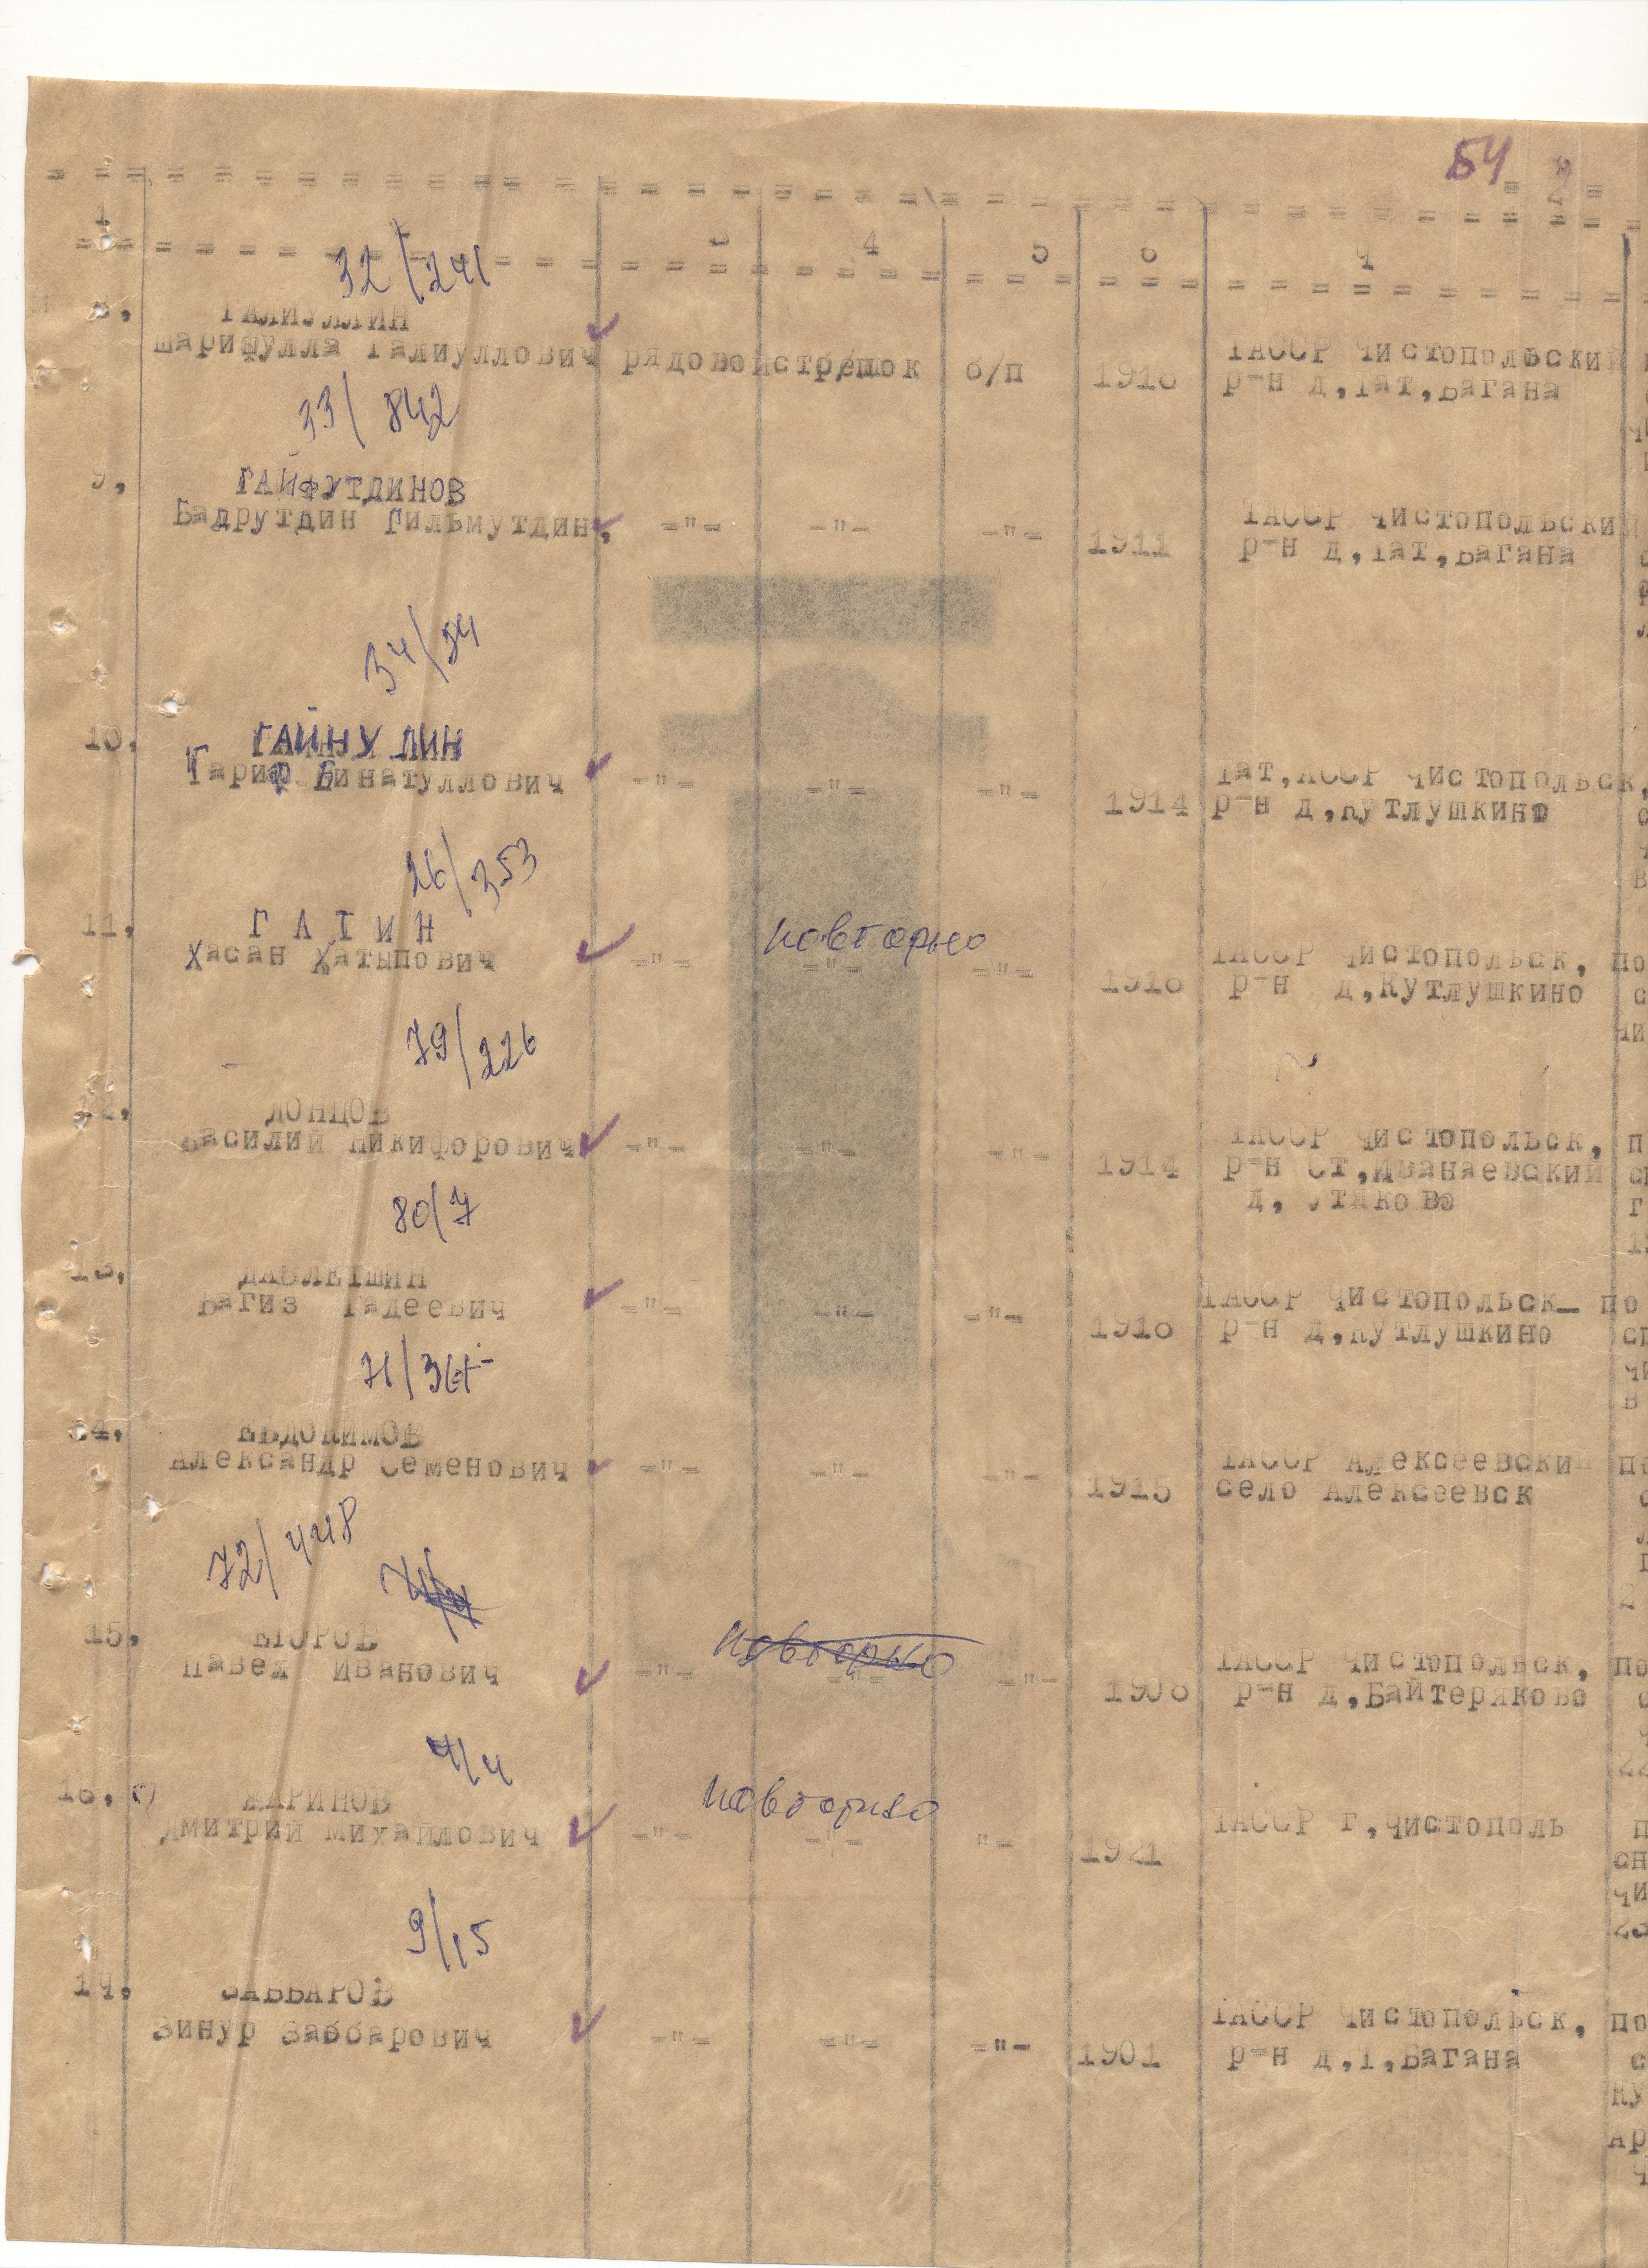 54
= 2 =
1 3 4 5 6 7
32/241
8, ГАЛИУЛЛИН
Шарифулла Галиуллович рядовой стрелок б/п 1918 ТАССР Чистопольский
р-н д,Тат,Багана
33/842
9, ГАЙФУТДИНОВ
Бадрутдин Гильмутдин, -"- -"- -"- 1911 ТАССР Чистопольский
р-н д,Тат,Багана
34/54
10, ГАЙНУЛИН
Гариф Бинатуллович -"- -"- -"- 1914 Тат,АССР Чистопольск,
р-н д,Кутлушкино
26/353
11, ГАТИН повторно
Хасан Хатыпович -"- -"- -"- 1918 ТАССР Чистопольск, по
р-н д,Кутлушкино
чи
79/226
12, ДОНЦОВ
Василий Никифорович -"- -"- -"- 1914 ТАССР Чистопольск, п
р-н Ст,Иванаевский
д, Утяково
80/7
13, ДАВЛЕТШИН
Вагиз Гадеевич -"- -"- -"- 1918 ТАССР Чистопольск- по
р-н д,Кутлушкино
14, ЕВДОКИМОВ
Александр Семенович -"- -"- -"- 1915 ТАССР Алексеевский
село Алексеевск
72/448
15, ЕГОРОВ повторно
Павел Иванович -"- -"- -"- 1908 ТАССР Чистопольск, по
р-н д,Байтеряково
4/4
16, ЖАРИНОВ повторно
Дмитрий Михайлович -"- -"- "- 1921 ТАССР г,Чистополь п
сн
чи
9/15
17, ЗАББАРОВ
Зинур Заббарович -"- -"- -"- 1901 ТАССР Чистопольск, по
р-н д,Т,Багана с
Ку
Ар